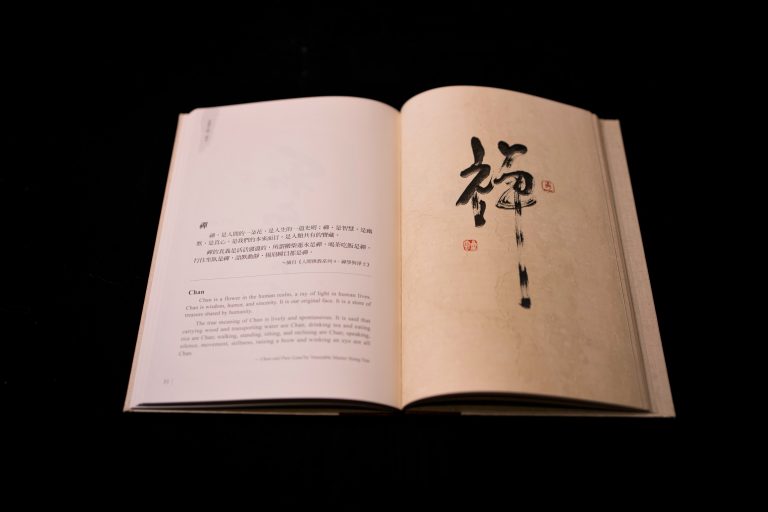 禪
禪，是人間的一朵花，是人生的一道光明；禪，是智慧，是幽
默，是真心，是我們的本來面目，是人類共有的寶藏。
禪的真義是活活潑潑的，所謂搬柴運水是禪，喝茶吃飯是禪，
行住坐臥是禪，語默動靜，揚眉瞬目都是禪。
Chan
Chan is a flower in the human realm, a ray of light in human lives.
Chan is wisdom, humor, and sincerity. It is our original face. It is a store of
treasure shared by humanity.
The true meaning of Chan is lively and spontaneous. It is said that
carrying wood and transporting water are Chan; drinking tea and eating
rice are Chan; walking, standing, sitting, and reclining are Chan; speaking,
silence, movement, stillness, raising a brow and winking an eye are all
Chan.
禪